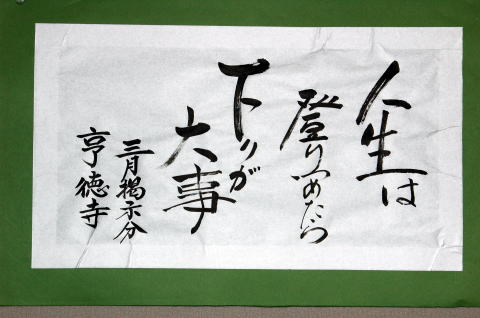 人生は
登りつめたら
下りが
大事
三月掲示分
亨徳寺